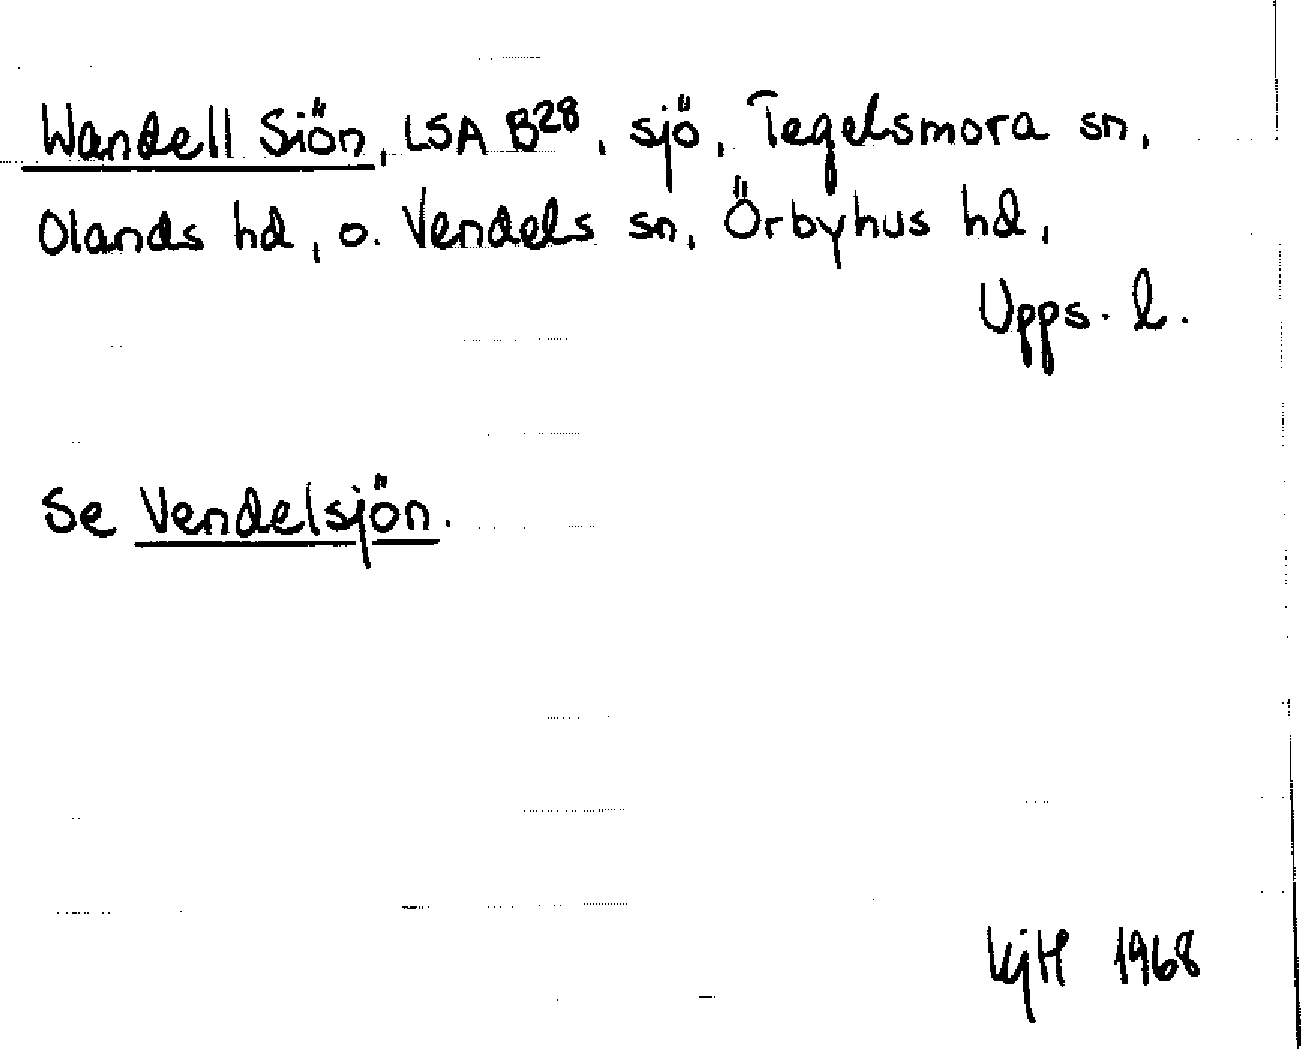 Wandell Siön, LSA B28, sjö, Tegelsmora sn,
Olands hd, o. Vendels sn, Örbyhus hd,
Upps. l.
Se Vendelsjön.
KjH 1968